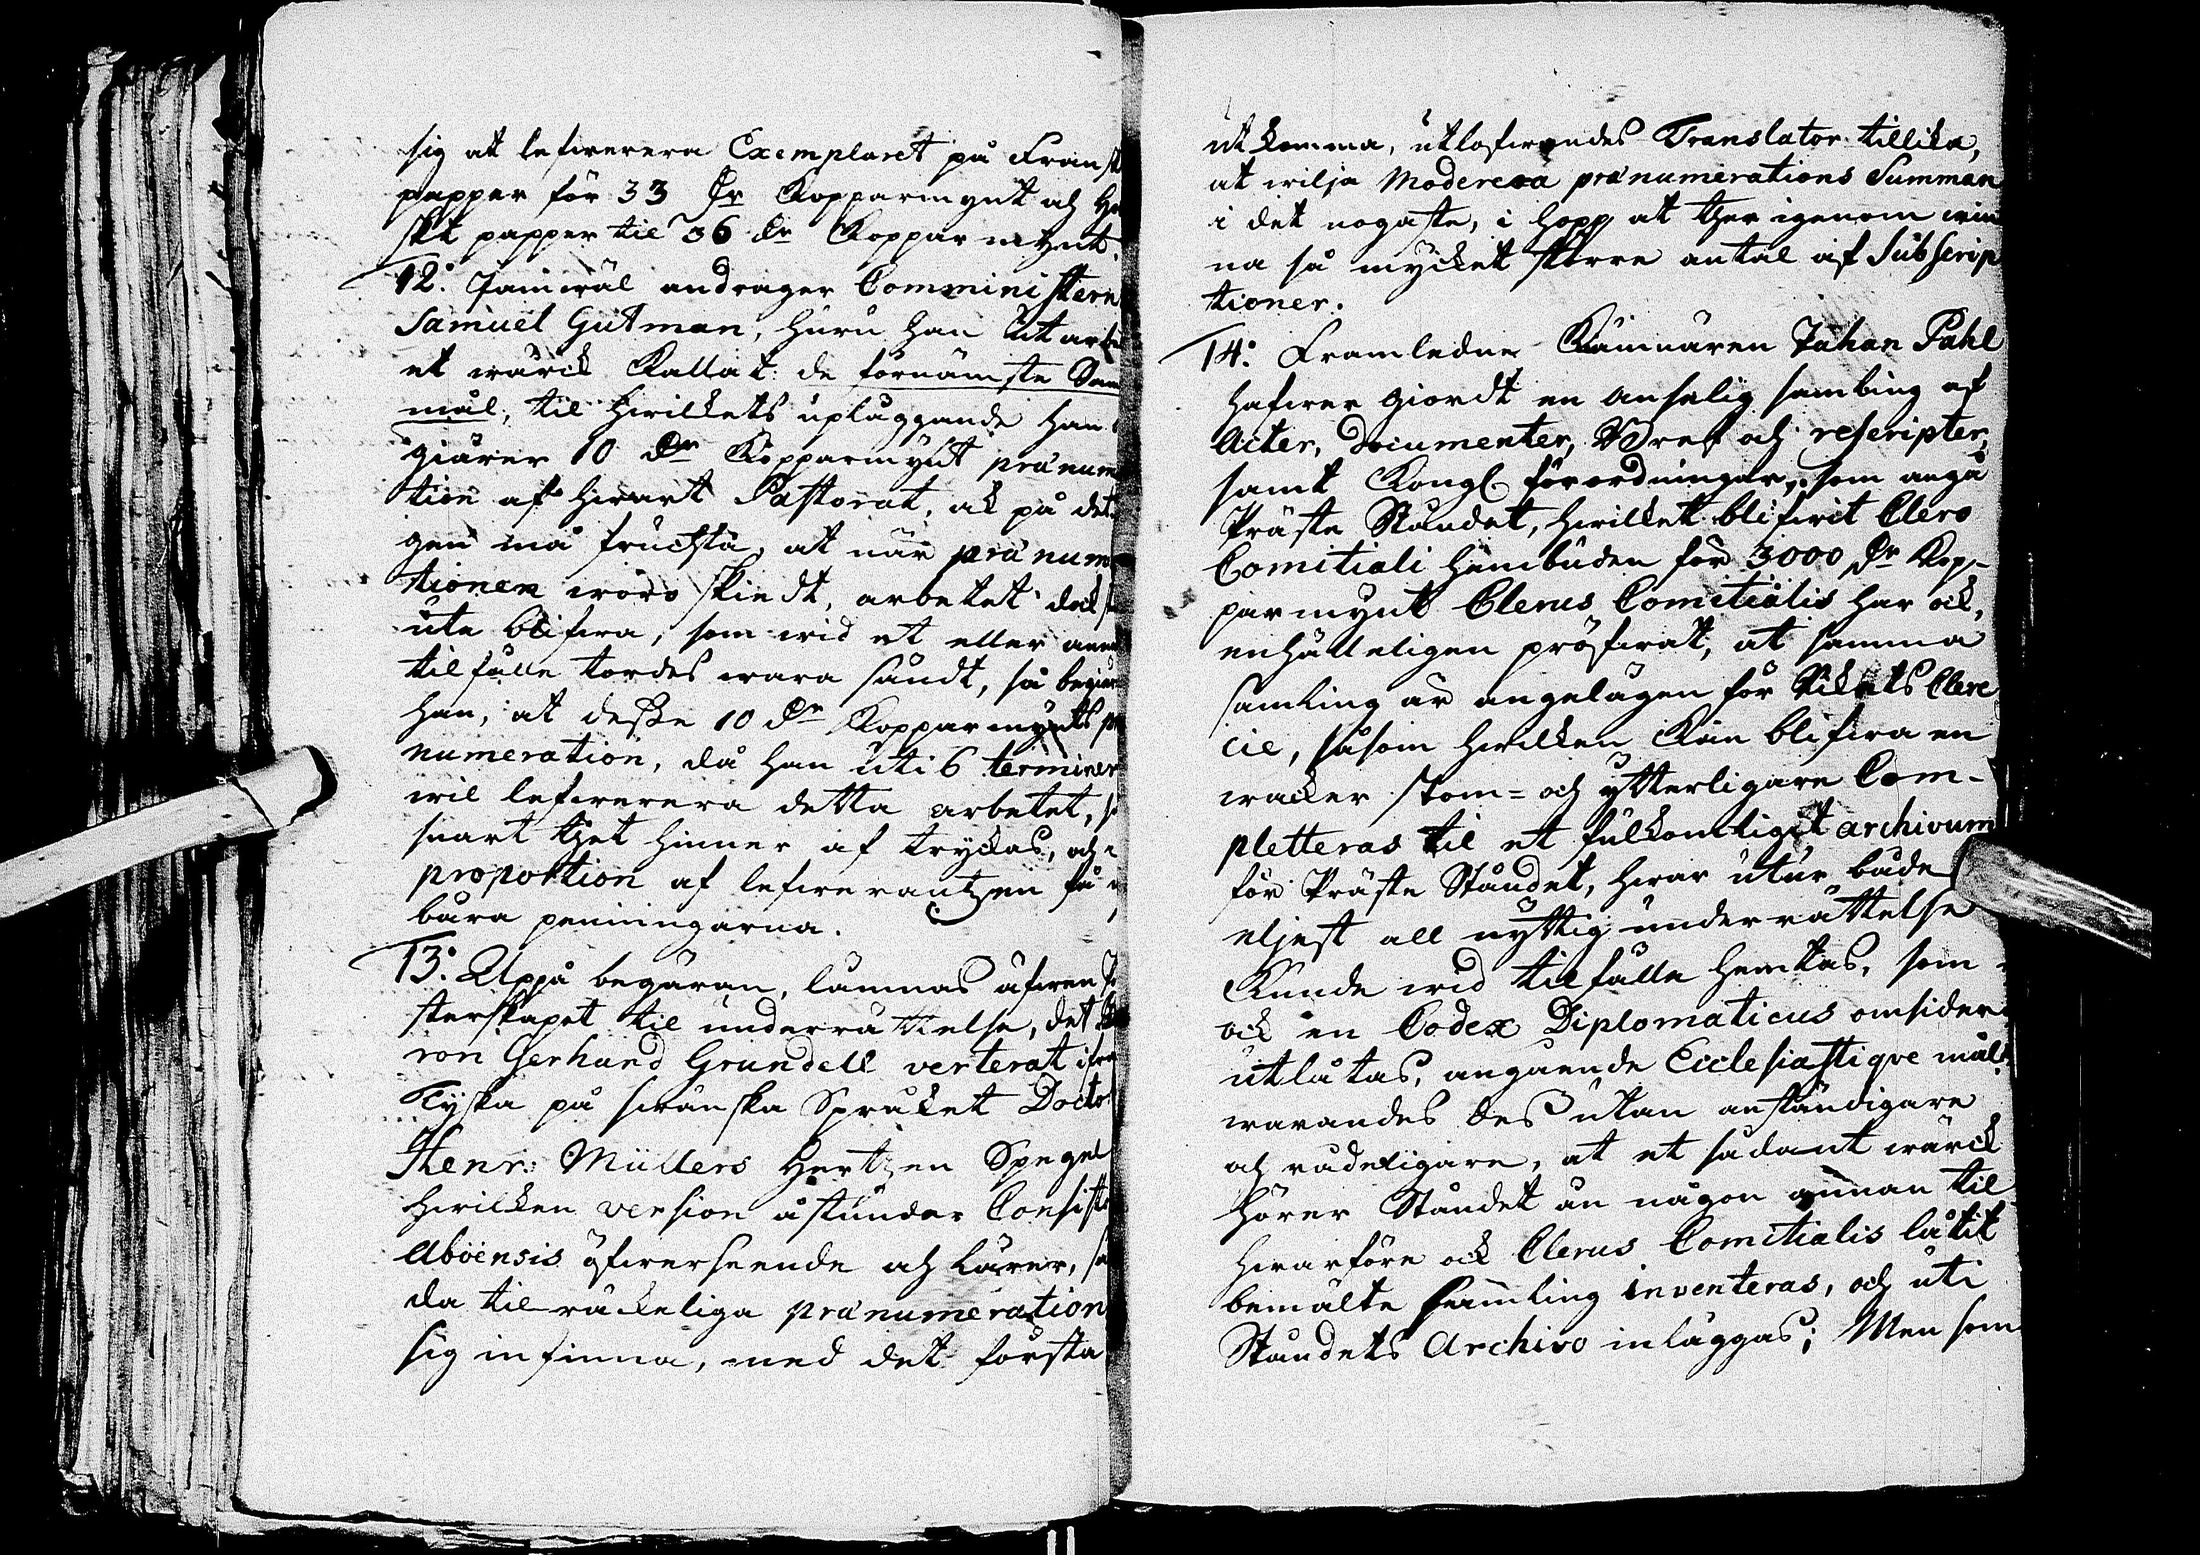 sig at lefwerera Exemplaret på Fransk
papper för 33 Dr Kopparmynt och Ho
skt papper til 36 dr Koppar mynt.
12: Jämwäl andrager Comministern
Samuel Gutman, huru han ut arbe
et wärck Kallat: de förnämste Sam
mål, til hwilkets upläggande han
giärer 10 dr Kopparmynt prænum
tion af hwart Pastorat, ock på det
gen må fruchta, at när prænum
tionen wore skiedt, arbetet dock
ute blifwa, som wid et eller annat
tilfälle tordes wara händt, så begiär
han, at desse 10 dr Kopparmynts præ
numeration, då han uti 6 terminer
wil lefwerera detta arbetet, så
snart thet hinner af tryckas, och i
proportion af lefwerantzen få
bära penningarna.
13: Uppå begäran, lämnas äfwen
sterskapet til underrättelse, det
ron Gerhard Grundell verterat ifrå
Tyska på swänska Språket Doctor
Henr: Müllers Hertzen Spegel
hwilken version åstundar Consist
Aboensis öfwerseende och lärer, så
da tilräckeliga prænumeration
sig infinna, med det första
utkomma, utlofwandes Translator tillika,
at wilja moderera prænumerations Summan
i det nogaste, i hopp at ther igenom win
na så mycket större antal af Subscrip
tioner.
14: Framledne Kämnären Johan Pahl
hafwer giordt en anselig samling af
Acter, documenter, Bref och rescripter,
samt Kongl. förordningar, som angå
Präste Ståndet, hwilket blifwit Clero
Comitiali hembuden för 3000 dr Kop-
parmynt Clerus Comitialis har ock,
enhälleligen pröfwat, at samma
samling är angelägen för Rikets Clere
cie, såsom hwilken kan blifwa en
wacker stom= och ytterligare Com-
pletteras til et fulkomligit archivum
för Präste Ståndet, hwar utur både
eljest all nyttig underrättelse
Kunde wid tilfälle hemtas, som
ock en Codex Diplomaticus omsider
utlåtas, angående Ecclesiastique mål:
warandes dessutan anständigare
och rådeligare, at et sådant wärck
hörer Ståndet än någon annan til
hwarföre ock Clerus Comitialis låtit
bemälte samling inventeras, och uti
Ståndets Archivo inläggas; Men som